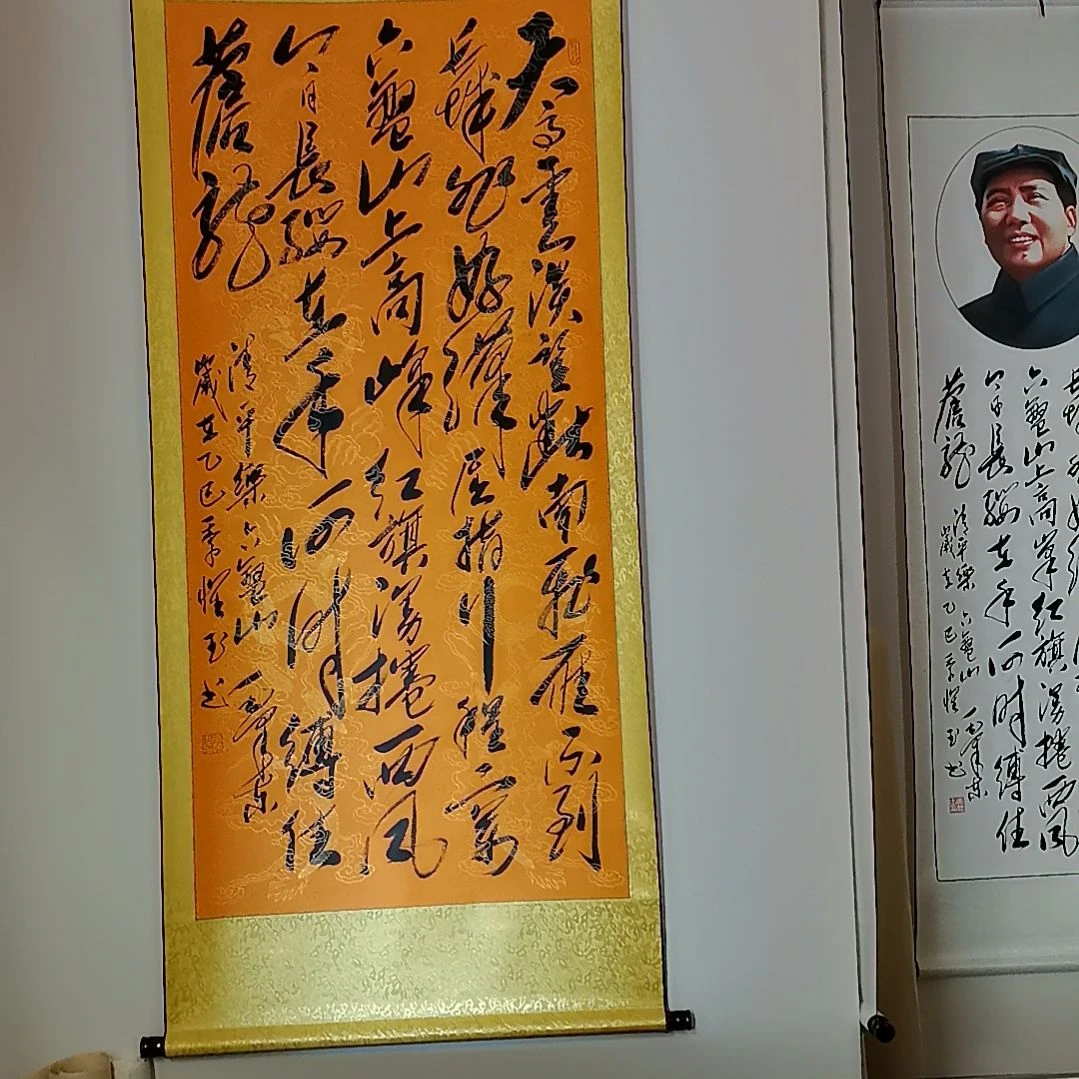 天高雲淡望斷南飛雁不到
長城非好漢屈指行程二萬
六盤山上高峰紅旗漫捲西風
今日長纓在手何時縛住
蒼龍
清平樂六盤山毛澤東
歲在乙巳玉书
六盤山上高峯紅旗漫捲西風
今日長纓在手何時縛住
蒼龍
清平樂六盤山毛澤東
歲在乙巳玉书